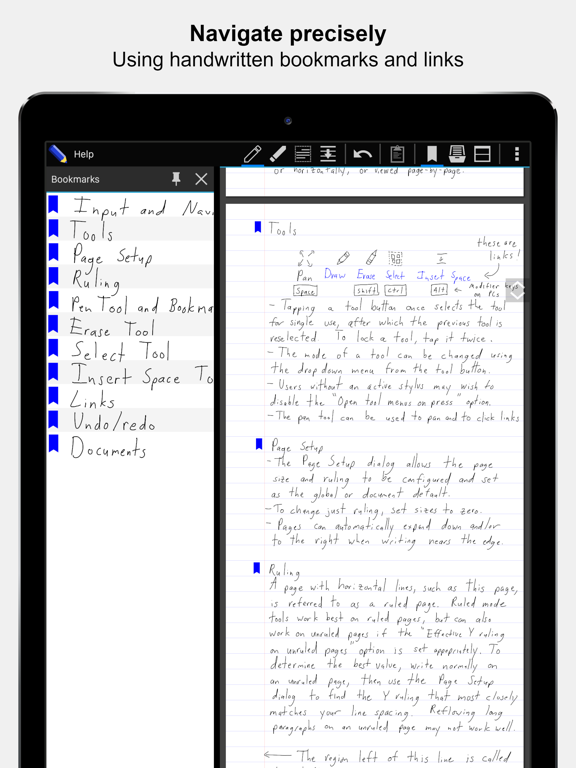 Navigate precisely
Using handwritten bookmarks and links
Help
Bookmarks
Input and Navi
Tools
Page Setup
Ruling
Pen Tool and Bookma
Erase Tool
Select Tool
Insert Space To
Links
Undo/redo
Documents
or horizontally, or viewed page-by-page.
Tools
these are
links!
Pan Draw Erase Select Insert Space
Space shift ctrl Alt
modifier keys
on PCs
- Tapping a tool button once selects the tool
for single use, after which the previous tool is
reselected. To lock a tool, tap it twice.
- The mode of a tool can be changed using
the drop down menu from the tool button.
- Users without an active stylus may wish to
disable the "Open tool menus on press" option.
- The pen tool can be used to pan and to click links
Page Setup
- The Page Setup dialog allows the page
size and ruling to be configured and set
as the global or document default.
- To change just ruling, set sizes to zero.
- Pages can automatically expand down and/or
to the right when writing nears the edge.
Ruling
A page with horizontal lines, such as this page,
is referred to as a ruled page. Ruled mode
tools work best on ruled pages, but can also
work on unruled pages if the "Effective Y ruling
on unruled pages" option is set appropriately. To
determine the best value, write normally on
an unruled page, then use the Page Setup
dialog to find the Y ruling that most closely
matches your line spacing. Reflowing long
paragraphs on an unruled page may not work well.
The region left of this line is called